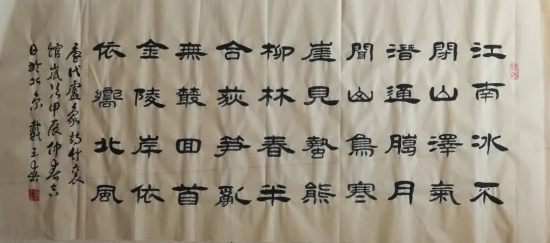 江南冰不
閉山澤氣
潛通臈月
聞山鳥寒
崖見蟄熊
柳林春半
合荻笋亂
無叢回首
金陵岸依
依嚮北風
唐代盧象詩竹裏
館歲次甲辰仲春吉
日於北京 戴玉